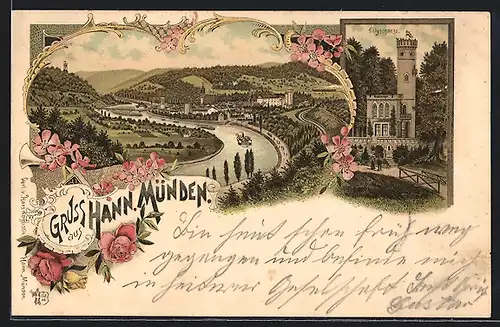 Tillyschanze.
GRUSS aus HANN. MÜNDEN.
Bin heut schon früh weg
gegangen und befinde mich
in heiterer Gesellschaft
Hann. Münden.